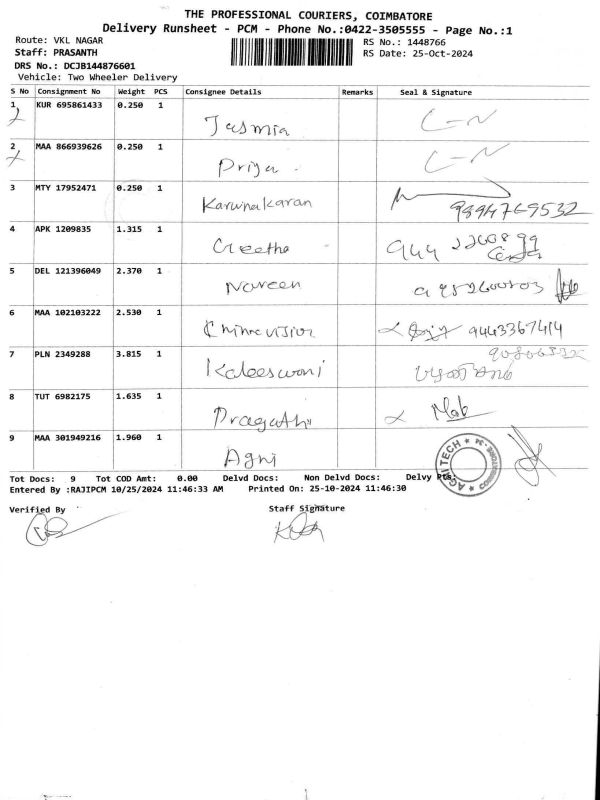 THE PROFESSIONAL COURIERS, COIMBATORE
Delivery Runsheet - PCM - Phone No.:0422-3505555 - Page No.:1
Route: VKL NAGAR RS No.: 1448766
Staff: PRASANTH RS Date: 25-Oct-2024
DRS No.: DCJB144876601
Vehicle: Two Wheeler Delivery
S No Consignment No Weight PCS Consignee Details Remarks Seal & Signature
1 KUR 695861433 0.250 1 Jasmia L-N
2 MAA 866939626 0.250 1 Priya. L-N
3 MTY 17952471 0.250 1 Karunakaran 9894769532
4 APK 1209835 1.315 1 Geetha
5 DEL 121396049 2.370 1 Naveen
6 MAA 102103222 2.530 1 9443367414
7 PLN 2349288 3.815 1 Kaleeswani
8 TUT 6982175 1.635 1 Pragathi
9 MAA 301949216 1.960 1 Agni
Tot Docs: 9 Tot COD Amt: 0.00 Delvd Docs: Non Delvd Docs: Delvy Pts:
Entered By :RAJIPCM 10/25/2024 11:46:33 AM Printed On: 25-10-2024 11:46:30
Verified By Staff Signature